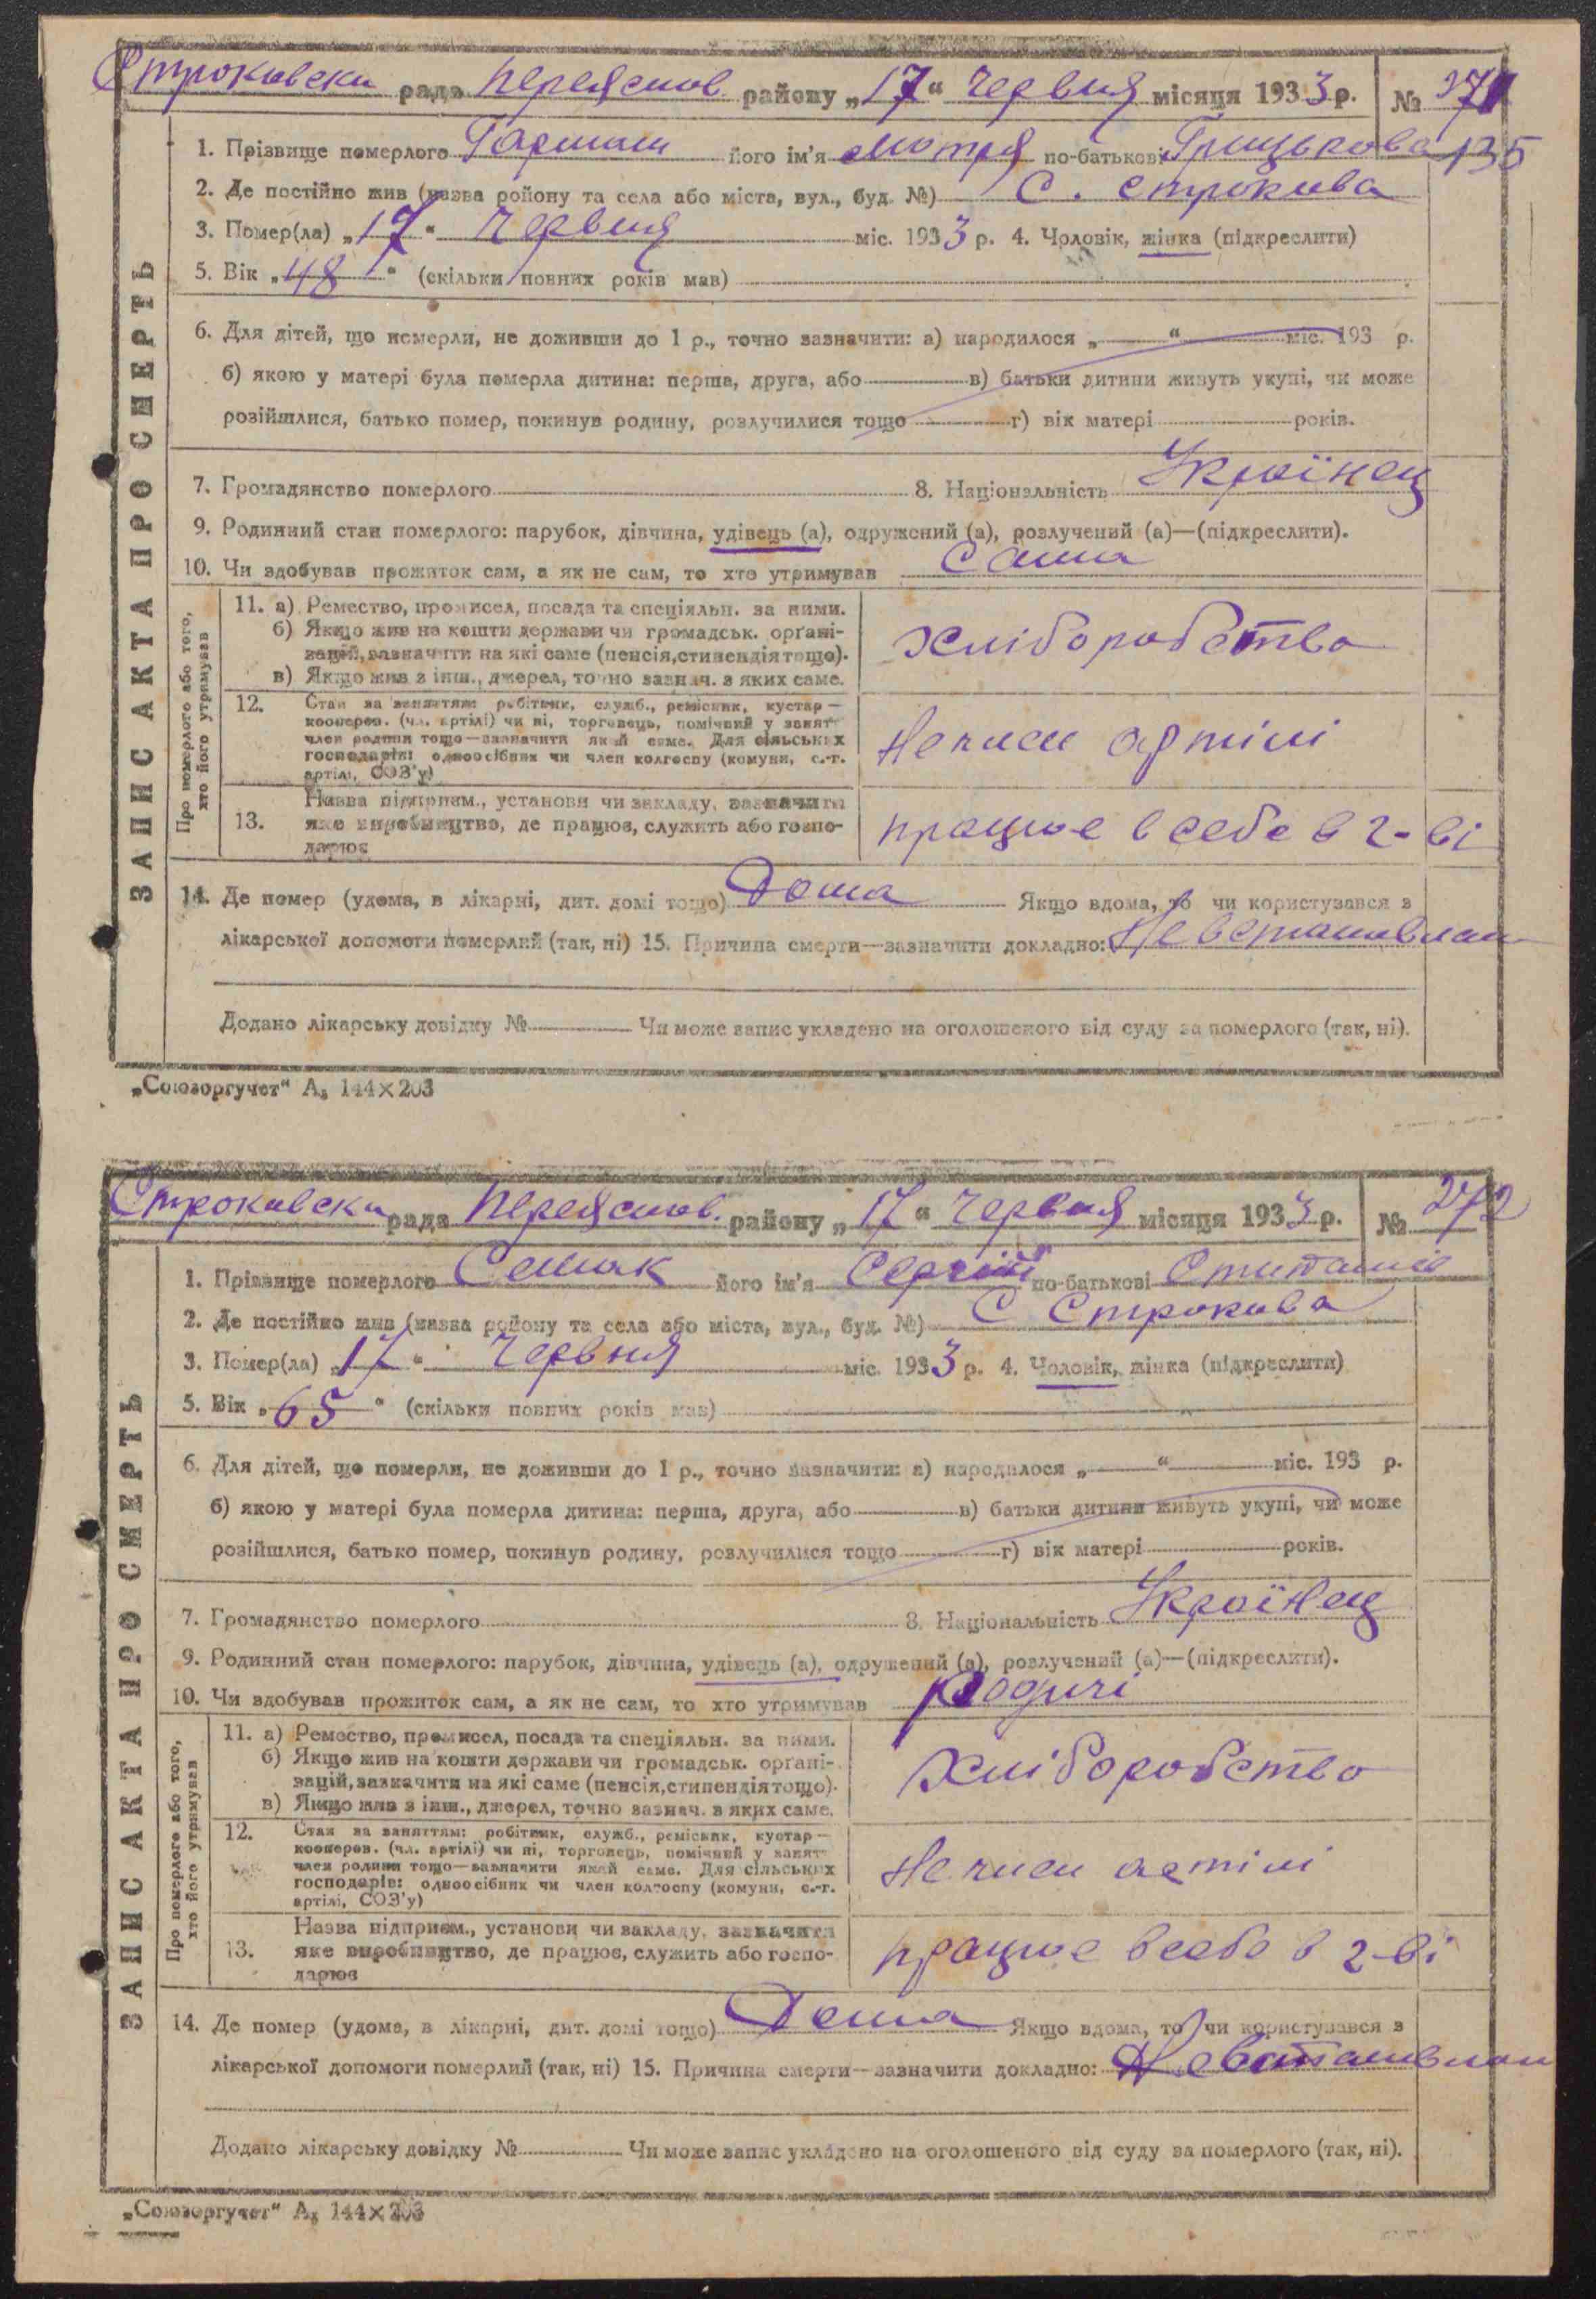 Строковска рада Переяслов. району „17“ червня місяця 1933 р. № 271
1. Прізвище померлого його ім'я Мотря по-батькові Грицькова 135
2. Де постійно жив (назва району та села або міста, вул., буд. №) С. Строкова
3. Помер(ла) „17“ Червня міс. 1933 р. 4. Чоловік, жінка (підкреслити)
5. Вік „48“ (скільки повних років мав)
6. Для дітей, що померли, не доживши до 1 р., точно зазначити: а) народилося „ “ міс. 193 р.
б) якою у матері була померла дитина: перша, друга, або в) батьки дитини живуть укупі, чи може
розійшлися, батько помер, покинув родину, розлучилися тощо г) вік матері років.
7. Громадянство померлого 8. Національність Українец
9. Родинний стан померлого: парубок, дівчина, удівець (а), одружений (а), розлучений (а)—(підкреслити).
10. Чи здобував прожиток сам, а як не сам, то хто утримував Сама
ЗАПИС АКТА ПРО СМЕРТЬ
Про померлого або того, хто його утримував
11. а) Ремество, промисел, посада та спеціяльн. за ними.
б) Якщо жив на кошти держави чи громадськ. органі-
зацій, зазначити на які саме (пенсія, стипендія тощо).
в) Якщо жив з інш., джерел, точно зазнач. з яких саме.
Хліборобство
12. Стан за заняттям: робітник, служб., ремісник, кустар—
кооперов. (чл. артілі) чи ні, торговець, помічний у занят-
член родини тощо—зазначити який саме. Для сільських
господарів: одноосібник чи член колгоспу (комуни, с.-г.
артілі, СОЗ'у)
Не член артілі
13. Назва підприєм., установи чи закладу, зазначити
яке виробництво, де працює, служить або госпо-
дарює
працює в себе в г-ві
14. Де помер (удома, в лікарні, дит. домі тощо) Дома Якщо вдома, то чи користувався з
лікарської допомоги померлий (так, ні) 15. Причина смерти—зазначити докладно: Не встановлен
Додано лікарську довідку № Чи може запис укладено на оголошеного від суду за померлого (так, ні).
„Союзоргучет“ А₅ 144×203
Строковска рада Переяслов. району „17“ червня місяця 1933 р. № 272
1. Прізвище померлого Семак його ім'я Сергій по-батькові
2. Де постійно жив (назва району та села або міста, вул., буд. №) С Строкова
3. Помер(ла) „17“ Червня міс. 1933 р. 4. Чоловік, жінка (підкреслити)
5. Вік „65“ (скільки повних років мав)
6. Для дітей, що померли, не доживши до 1 р., точно зазначити: а) народилося „ “ міс. 193 р.
б) якою у матері була померла дитина: перша, друга, або в) батьки дитини живуть укупі, чи може
розійшлися, батько помер, покинув родину, розлучилися тощо г) вік матері років.
7. Громадянство померлого 8. Національність Українец
9. Родинний стан померлого: парубок, дівчина, удівець (а), одружений (а), розлучений (а)—(підкреслити).
10. Чи здобував прожиток сам, а як не сам, то хто утримував Родичі
ЗАПИС АКТА ПРО СМЕРТЬ
Про померлого або того, хто його утримував
11. а) Ремество, промисел, посада та спеціяльн. за ними.
б) Якщо жив на кошти держави чи громадськ. органі-
зацій, зазначити на які саме (пенсія, стипендія тощо).
в) Якщо жив з інш., джерел, точно зазнач. з яких саме.
Хліборобство
12. Стан за заняттям: робітник, служб., ремісник, кустар—
кооперов. (чл. артілі) чи ні, торговець, помічний у занят-
член родини тощо—зазначити який саме. Для сільських
господарів: одноосібник чи член колгоспу (комуни, с.-г.
артілі, СОЗ'у)
Не член артілі
13. Назва підприєм., установи чи закладу, зазначити
яке виробництво, де працює, служить або госпо-
дарює
працює в себе в г-ві
14. Де помер (удома, в лікарні, дит. домі тощо) Дома Якщо вдома, то чи користувався з
лікарської допомоги померлий (так, ні) 15. Причина смерти—зазначити докладно: Не встановлен
Додано лікарську довідку № Чи може запис укладено на оголошеного від суду за померлого (так, ні).
„Союзоргучет“ А₅ 144×203